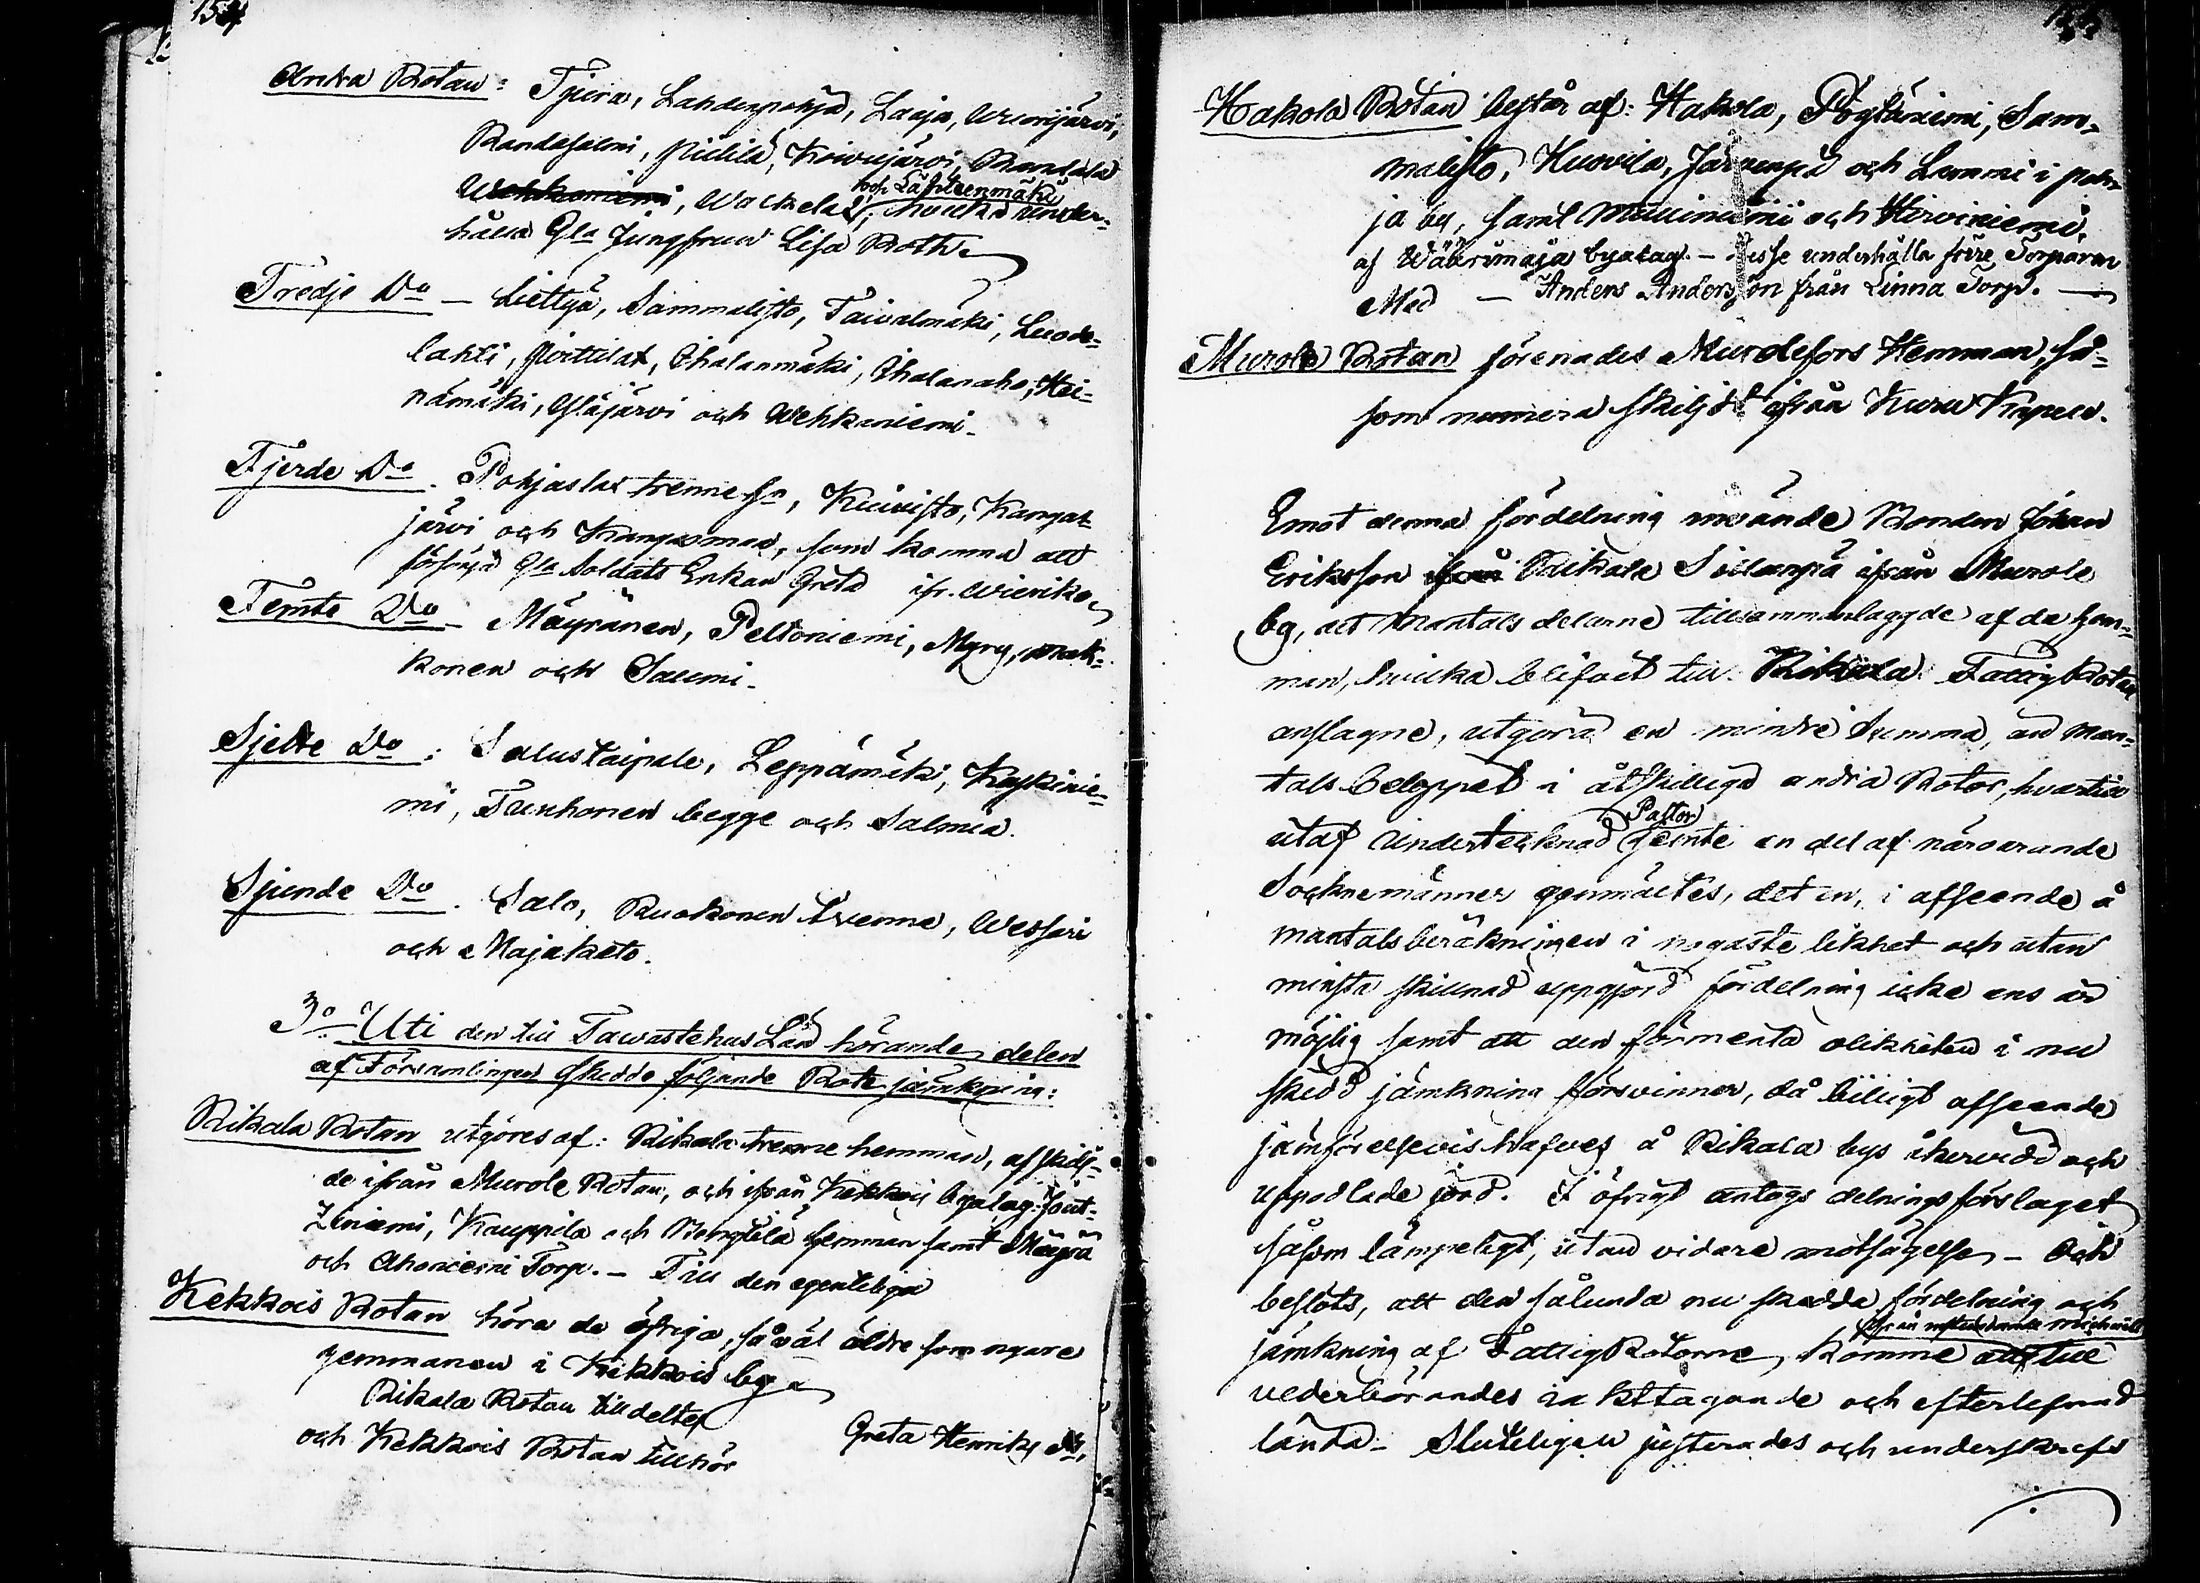 154
Andra Rotan: Tjura, Lahdenpohja, Laaja, Wuorijärvi,
Randasalmi, Pietilä, Koivujärvi, Randala
Wehkaniemi, Walkela och Lähteenmäki; hvilka under-
hålla Gla Jungfrun Lisa Roth.
Tredje Do – Liettyä, Sammalisto, Taivalmäki, Luode-
lahti, Pirttilax, Ohalanmäki, Ohalanaho, Hei-
nämäki, Yläjärvi och Wehkaniemi.
Fjerde Do. Pohjaslax trenne Hn, Kuivisto, Kangas-
järvi och Kangasmaa, som komma att
försörja Gla Soldats Enkan Greta ifr. Wierikko
Femte Do – Mäyränen, Peltoniemi, Myry, Mak-
konen och Salmi.
Sjette Do: Salustaipale, Leppämäki, Koskinie-
mi, Taunhonen begge och Salmia.
Sjunde Do. Salo, Ruokonen trenne, Wessari
och Majakato.
3o Uti den till Tawastehus Län hörande delen
af Församlingen skedde följande Rote jämkning:
Rikala Rotan utgöres af: Rikala trenne hemman, afskilj-
de ifrån Murole Rotan, och ifrån Kekkois byalag: Jout-
ziniemi, Kauppila och Bengtilä hemman samt Mäyrä
och Ahoniemi Torp. – Till den egenteliga
Kekkois Rotan höra de öfriga, såväl äldre som nyare
hemmanen i Kekkois by.
Rikala Rotan tilldeltes
och Kekkois Rotan tillhör Greta Henriks dr,
155
Hakola Rotan består af: Hakola, Pöytäniemi, Sam-
malisto, Huovila, Järvenpä och Lammi i poh-
ja by, samt Mullinniemi och Hirviniemi,
af Wäärinmaja byalag. – Desse underhålla förre Torparen
Med – Anders Andersson från Linna Torp. –
Murole Rotan förenades Murolefors Hemman, så-
som numera skiljdt ifrån Kuru Kapell.
Emot denna fördelning invände Bonden Johan
Eriksson ifrån Paikala Sillanpä ifrån Murole
by, att Mantals delarne tillsammanlagde af de hem-
man, hvilka blifvit till Rikala Fattig Rotan
anslagne, utgöra en mindre summa, än man-
tals beloppet i åtskilliga andra Rotor, hvartill
utaf undertecknad Pastor jemte en del af närvarande
Sockne männer genmältes, det en, i afseende å
mantals beräkningen i nogaste likhet och utan
minsta skillnad uppgjord fördelning icke ens är
möjlig samt att den förmenta olikheten i nu
skedd jämkning försvinner, då billigt afseende
jämförelsevis hafves å Rikala bys åkervidd och
uppodlade jord. I öfrigt antogs delnings förslaget
såsom lämpeligt, utan vidare motsägelse – Och
beslöts, att den sålunda nu skedda fördelning och
jämkning af Fattig Rotorne, komme ifrån nästinstundande Michaeli att till
vederbörandes iakttagande och efterlefnad
lända. Sluteligen justerades och underskrefs